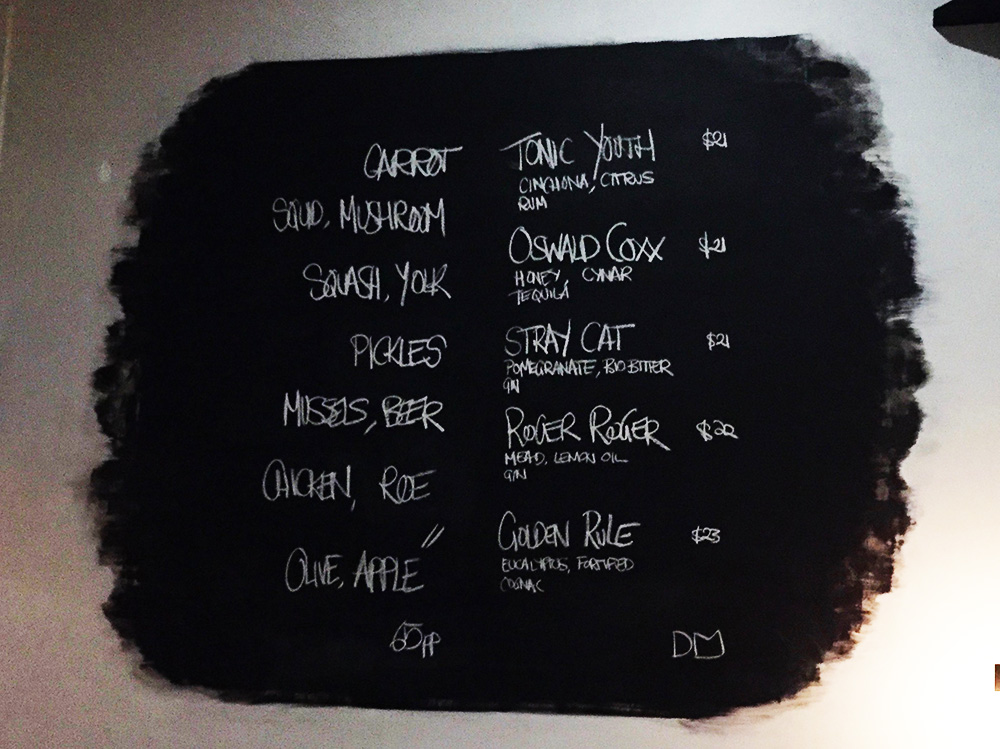 CARROT
SQUID, MUSHROOM
SQUASH, YOLK
PICKLES
MUSSELS, BEER
CHICKEN, ROE
//
OLIVE, APPLE
65PP
TONIC YOUTH $21
CINCHONA, CITRUS
RUM
OSWALD COXX $21
HONEY, CYNAR
TEQUILA
STRAY CAT $21
POMEGRANATE, BIO BITTER
GIN
ROGER ROGER $22
MEAD, LEMON OIL
GIN
GOLDEN RULE $23
EUCALYPTUS, FORTIFIED
COGNAC
DM